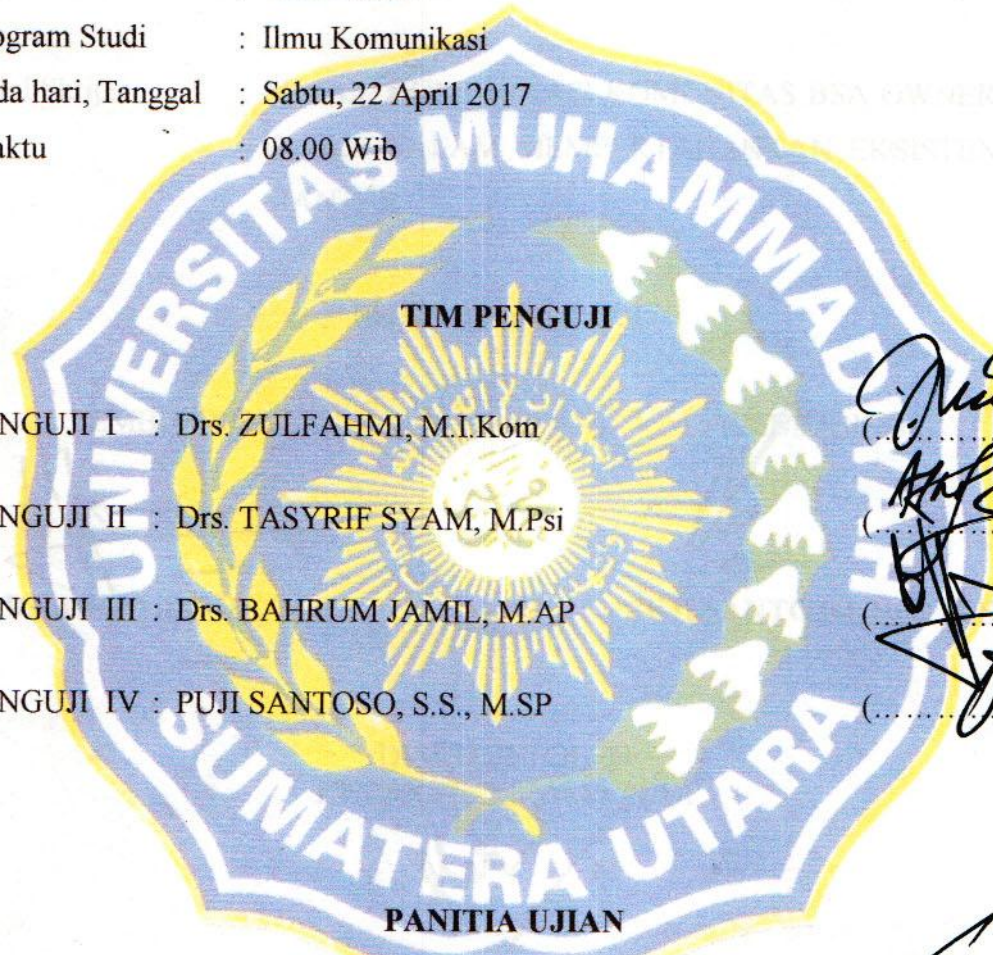 ogram Studi : Ilmu Komunikasi
da hari, Tanggal : Sabtu, 22 April 2017
aktu : 08.00 Wib
UNIVERSITAS MUHAMMADIYAH
TIM PENGUJI
NGUJI I : Drs. ZULFAHMI, M.I.Kom (............
NGUJI II : Drs. TASYRIF SYAM, M.Psi (............
NGUJI III : Drs. BAHRUM JAMIL, M.AP (............
NGUJI IV : PUJI SANTOSO, S.S., M.SP (............
SUMATERA UTARA
PANITIA UJIAN